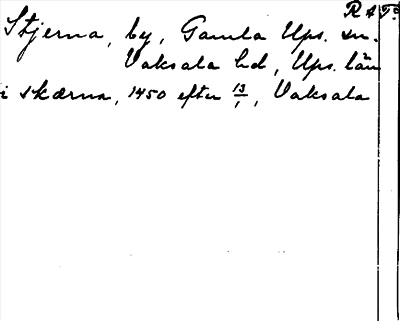 R A To
Stjerna, by, Gamla Ups. sn.
Vaksala hd, Ups. län
i skærna, 1450 efter 13/1, Vaksala